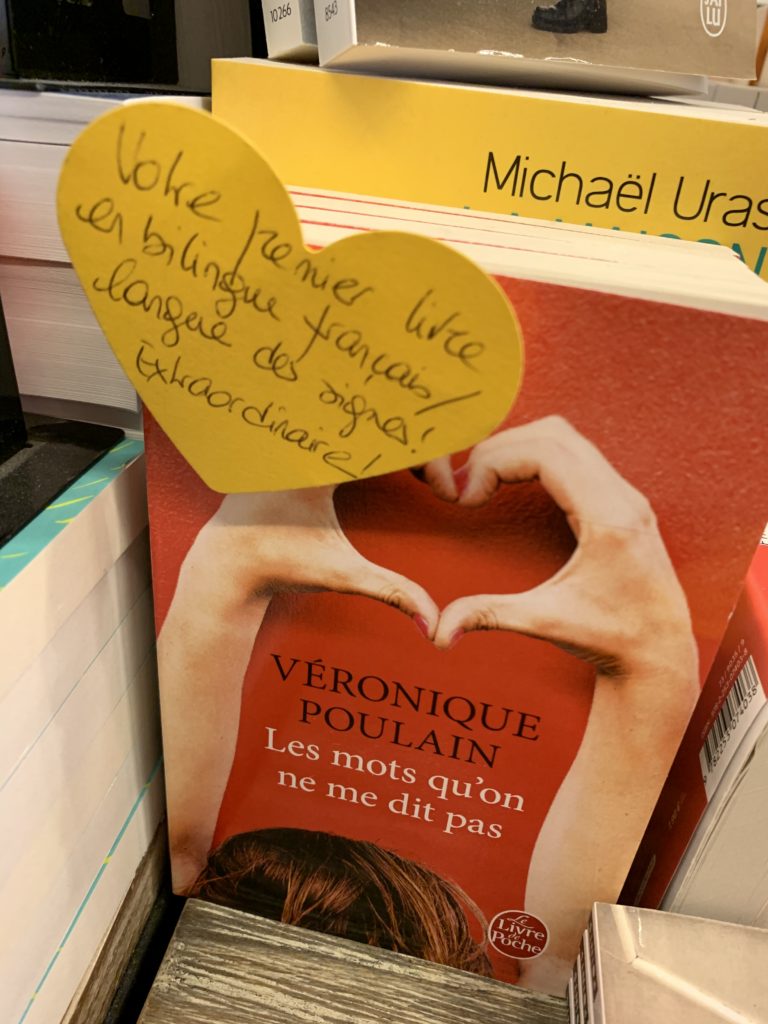 10266
8543
J'AI
LU
Michaël Uras
Votre premier livre
en bilingue français/
langue des signes!
Extraordinaire!
VÉRONIQUE
POULAIN
Les mots qu'on
ne me dit pas
Le
Livre
de
Poche